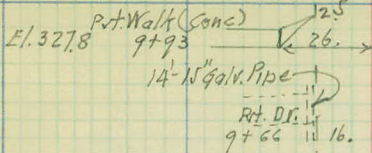 Pvt. Walk (Conc) 2.5
El. 327.8 9+93 26.
14'-15" Galv. Pipe
Pvt. Dr.
9+66 16.